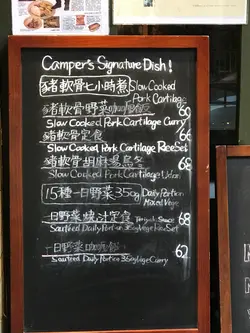 Camper's Signature Dish!
豬軟骨七小時煮 Slow Cooked Pork Cartilage
豬軟骨野菜咖喱飯 60
Slow Cooked Pork Cartilage Curry
豬軟骨定食 66
Slow Cooked Pork Cartilage Rice Set
豬軟骨胡麻湯烏冬 68
Slow Cooked Pork Cartilage Udon
15種一日野菜350g Daily Portion Mixed Vege
一日野菜燒汁定食 Teriyaki Sauce 68
Sauteed Daily Portion 350g Vege Rice Set
一日野菜咖喱飯 62
Sauteed Daily Portion 350g Vege Curry